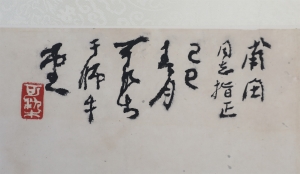 戴園
同志指正
己巳
春月
可染
于師牛
堂
可染